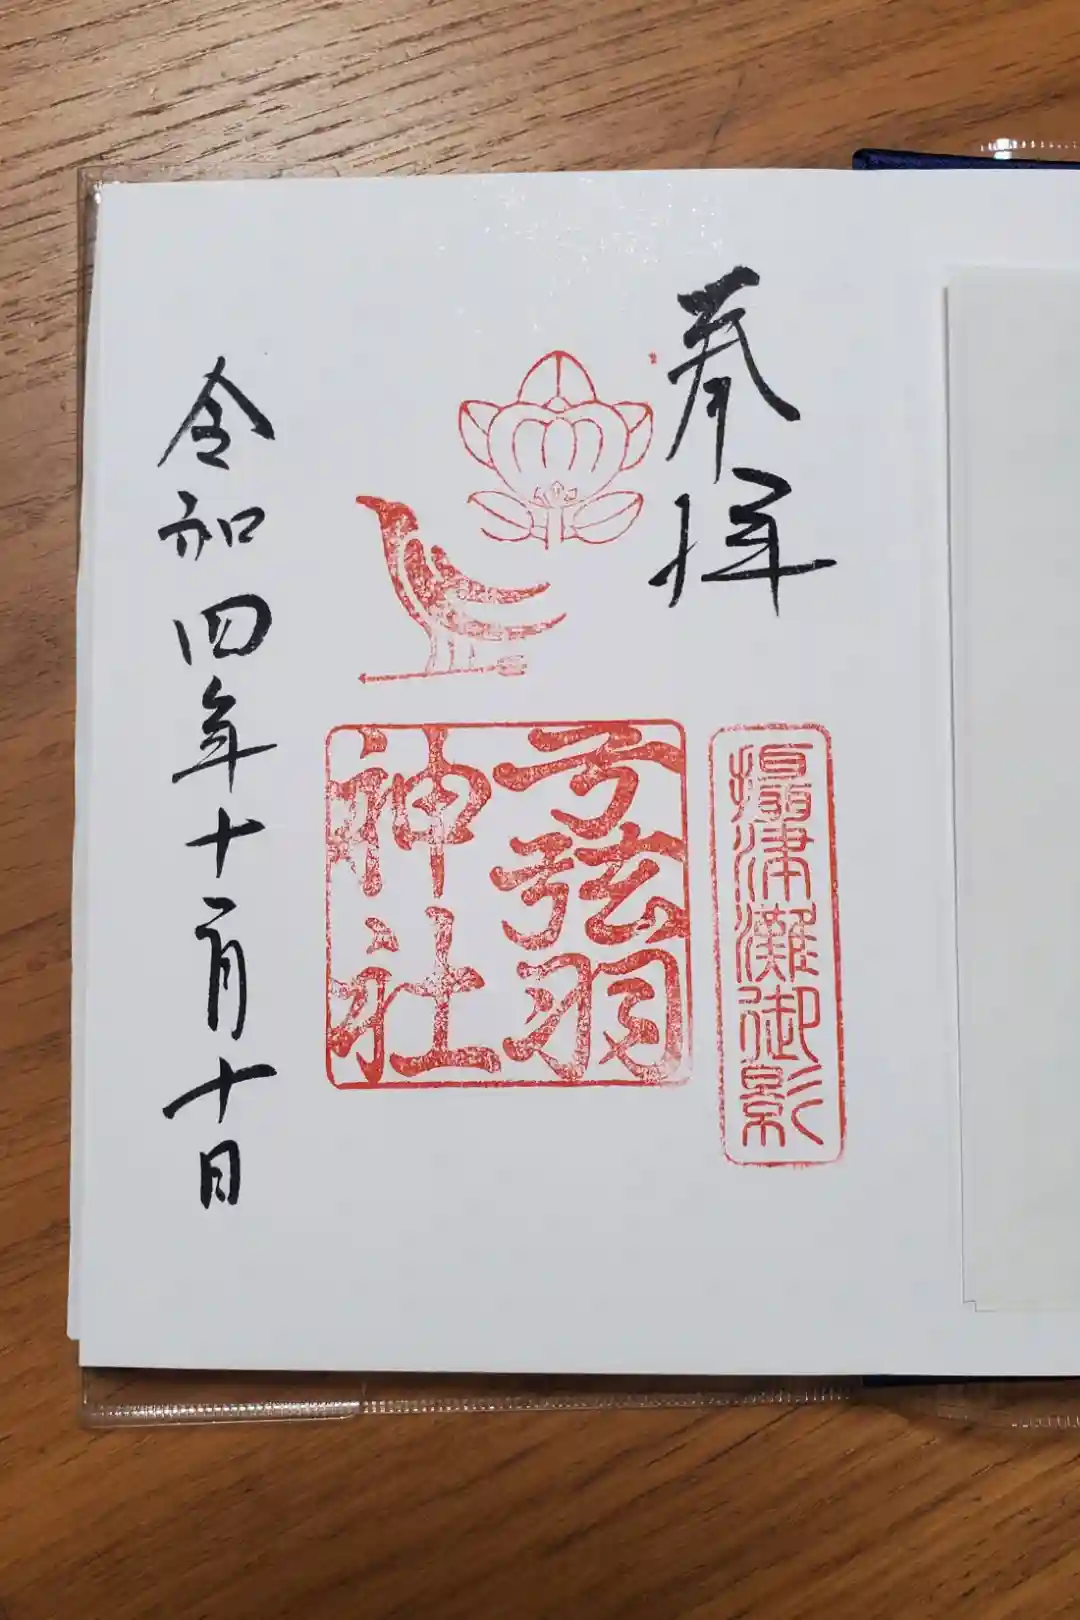 奉拝
攝津灘御影
弓弦羽
神社
令和四年十一月十日